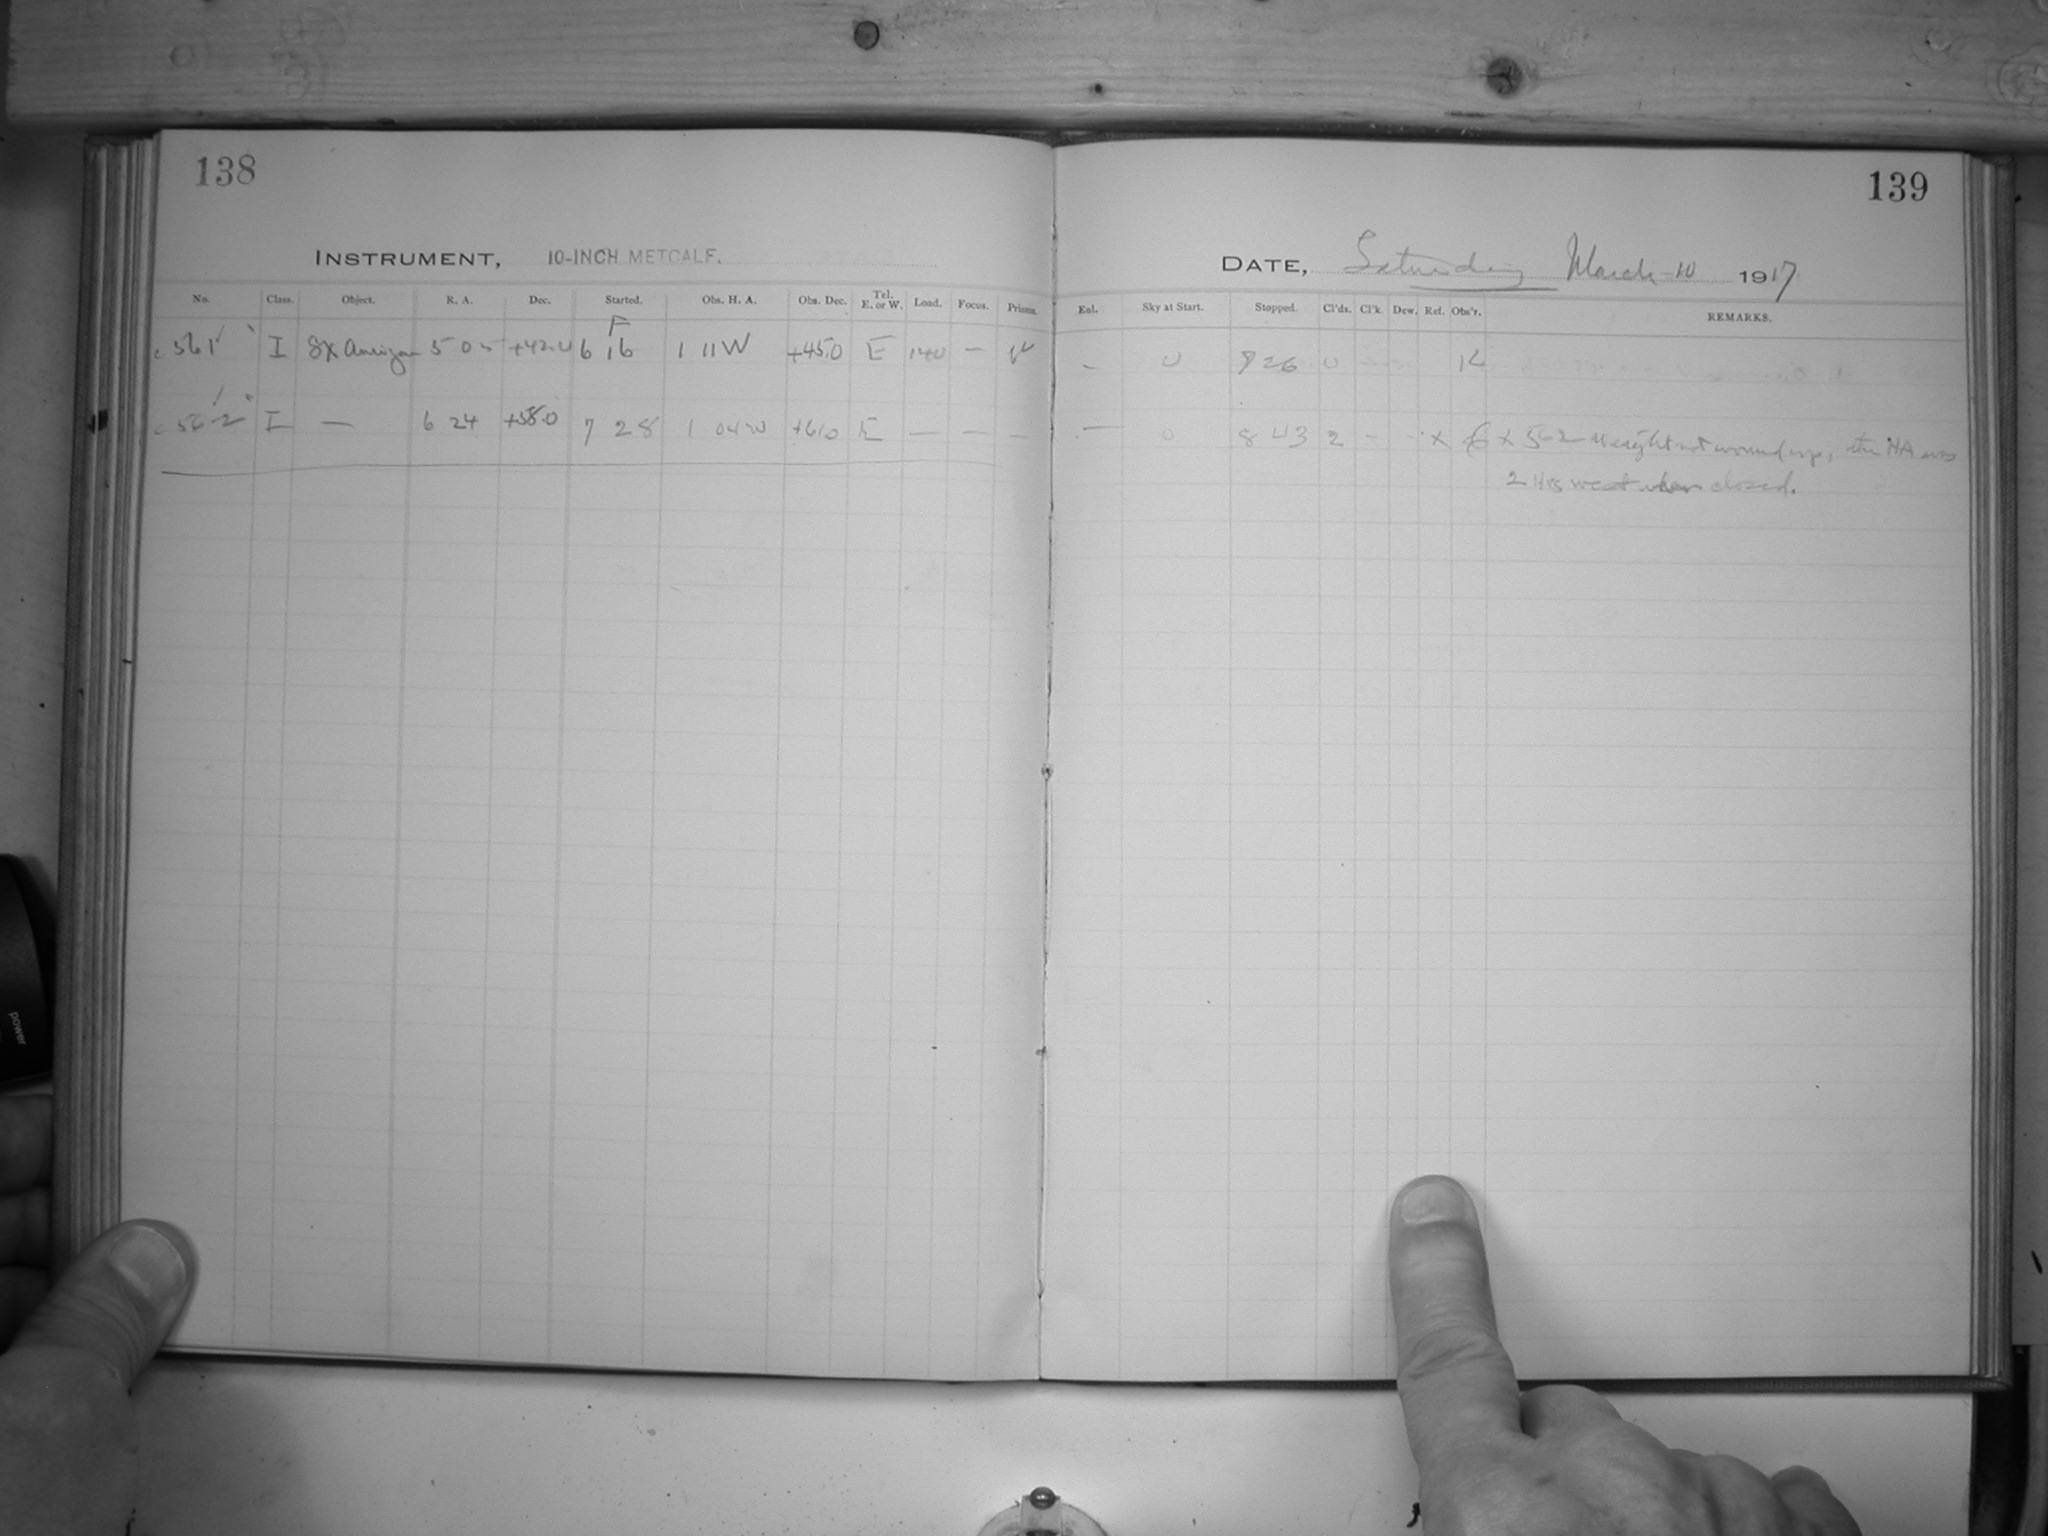 138
139
INSTRUMENT, 10-INCH METCALF.
DATE, Saturday March 10 1917
No. Class. Object. R. A. Dec. Started. Obs. H. A. Obs. Dec. Tel. E. or W. Load. Focus. Prisms.
Eal. Sky at Start. Stopped. Cl'ds. Cl'k. Dew. Ref. Obs'r. REMARKS.
F
c 561 I SX 5 05 +42.0 6 16 1 11 W +45.0 E 140 —
— 0 26 0
c 562 I — 6 24 +58.0 7 28 1 04 W +61.0 E — — —
— 0 8 43 2 - - x x 562 Weight not wound up, the HA was
2 Hrs west when closed.
power